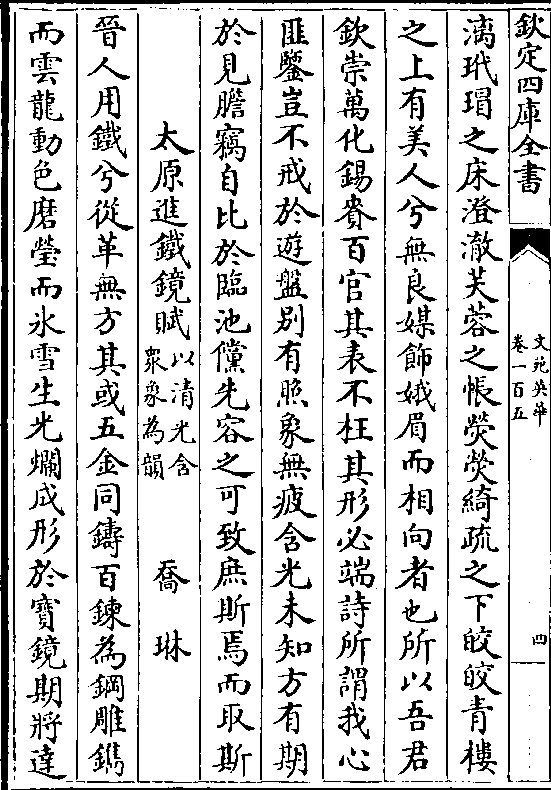 欽定四庫全書
文苑英華
卷一百五
四
漓玳瑁之床澄澈芙蓉之帳熒熒綺疏之下皎皎青樓
之上有美人兮無良媒飾娥眉而相向者也所以吾君
欽崇萬化錫賚百官其表不枉其形必端詩所謂我心
匪鑒豈不戒於遊盤别有照象無疲含光未知方有期
於見膽竊自比於臨池儻先容之可致庶斯焉而取斯
太原進鐵鏡賦以清光含衆象為韻 喬琳
晉人用鐵兮從革無方其或五金同鑄百鍊為鋼雕鐫
而雲龍動色磨瑩而氷雪生光爛成形於寶鏡期將達